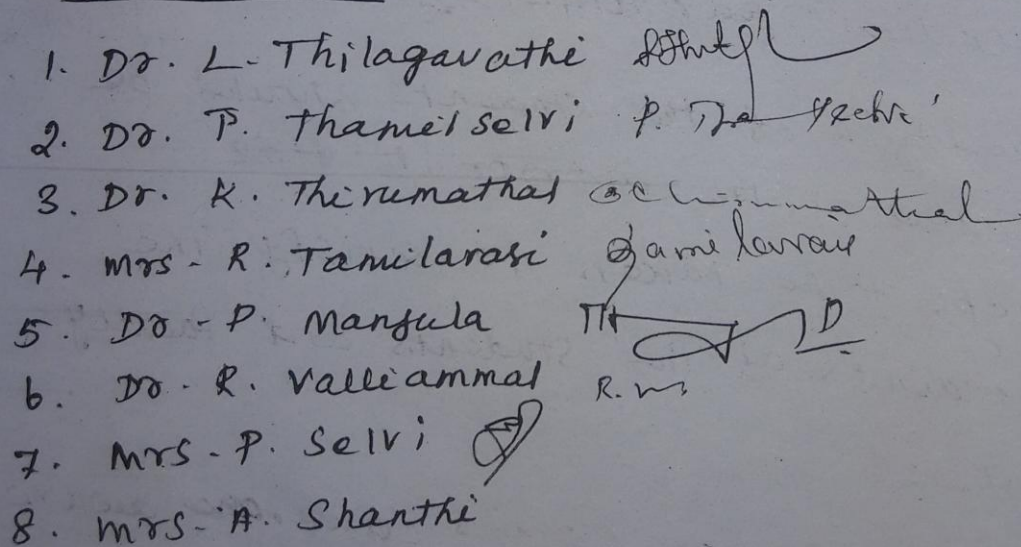 1. Dr. L. Thilagavathi
2. Dr. P. Thamilselvi P.
3. Dr. K. Thirumathal
4. Mrs - R. Tamilarasi
5. Dr - P. Manjula
6. Dr. R. Valliammal R.
7. Mrs - P. Selvi
8. Mrs - A. Shanthi